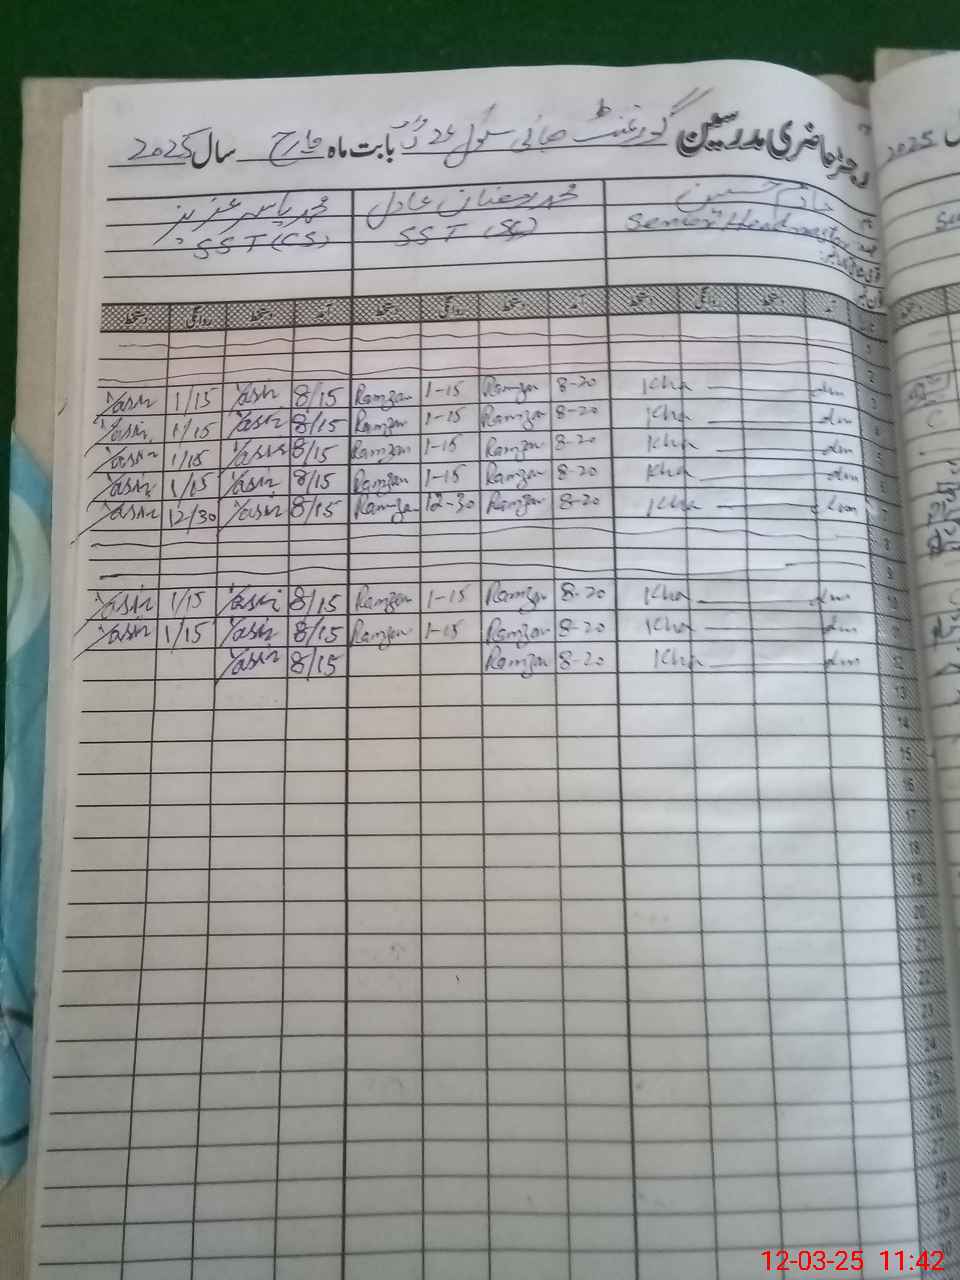 رجسٹر حاضری مدرسین گورنمنٹ ہائی سکول 26 بابت ماہ مارچ سال 2025
خادم حسین محمد رمضان عادل محمد یاسر عزیز
Senior Headmaster SST (SC) SST (CS)
آمد دستخط روانگی دستخط آمد دستخط روانگی دستخط آمد دستخط روانگی دستخط
1
2
3 Kha 8-20 Ramzan 1-15 Ramzan 8/15 Yasir 1/15 Yasir
4 Kha 8-20 Ramzan 1-15 Ramzan 8/15 Yasir 1/15 Yasir
5 Kha 8-20 Ramzan 1-15 Ramzan 8/15 Yasir 1/15 Yasir
6 Kha 8-20 Ramzan 1-15 Ramzan 8/15 Yasir 1/15 Yasir
7 Kha 8-20 Ramzan 12-30 Ramzan 8/15 Yasir 12/30 Yasir
8
9
10 Kha 8-20 Ramzan 1-15 Ramzan 8/15 Yasir 1/15 Yasir
11 Kha 8-20 Ramzan 1-15 Ramzan 8/15 Yasir 1/15 Yasir
12 Kha 8-20 Ramzan 8/15 Yasir
13
14
15
16
17
18
19
20
21
22
23
24
25
26
27
28
29
30
2025
12-03-25 11:42